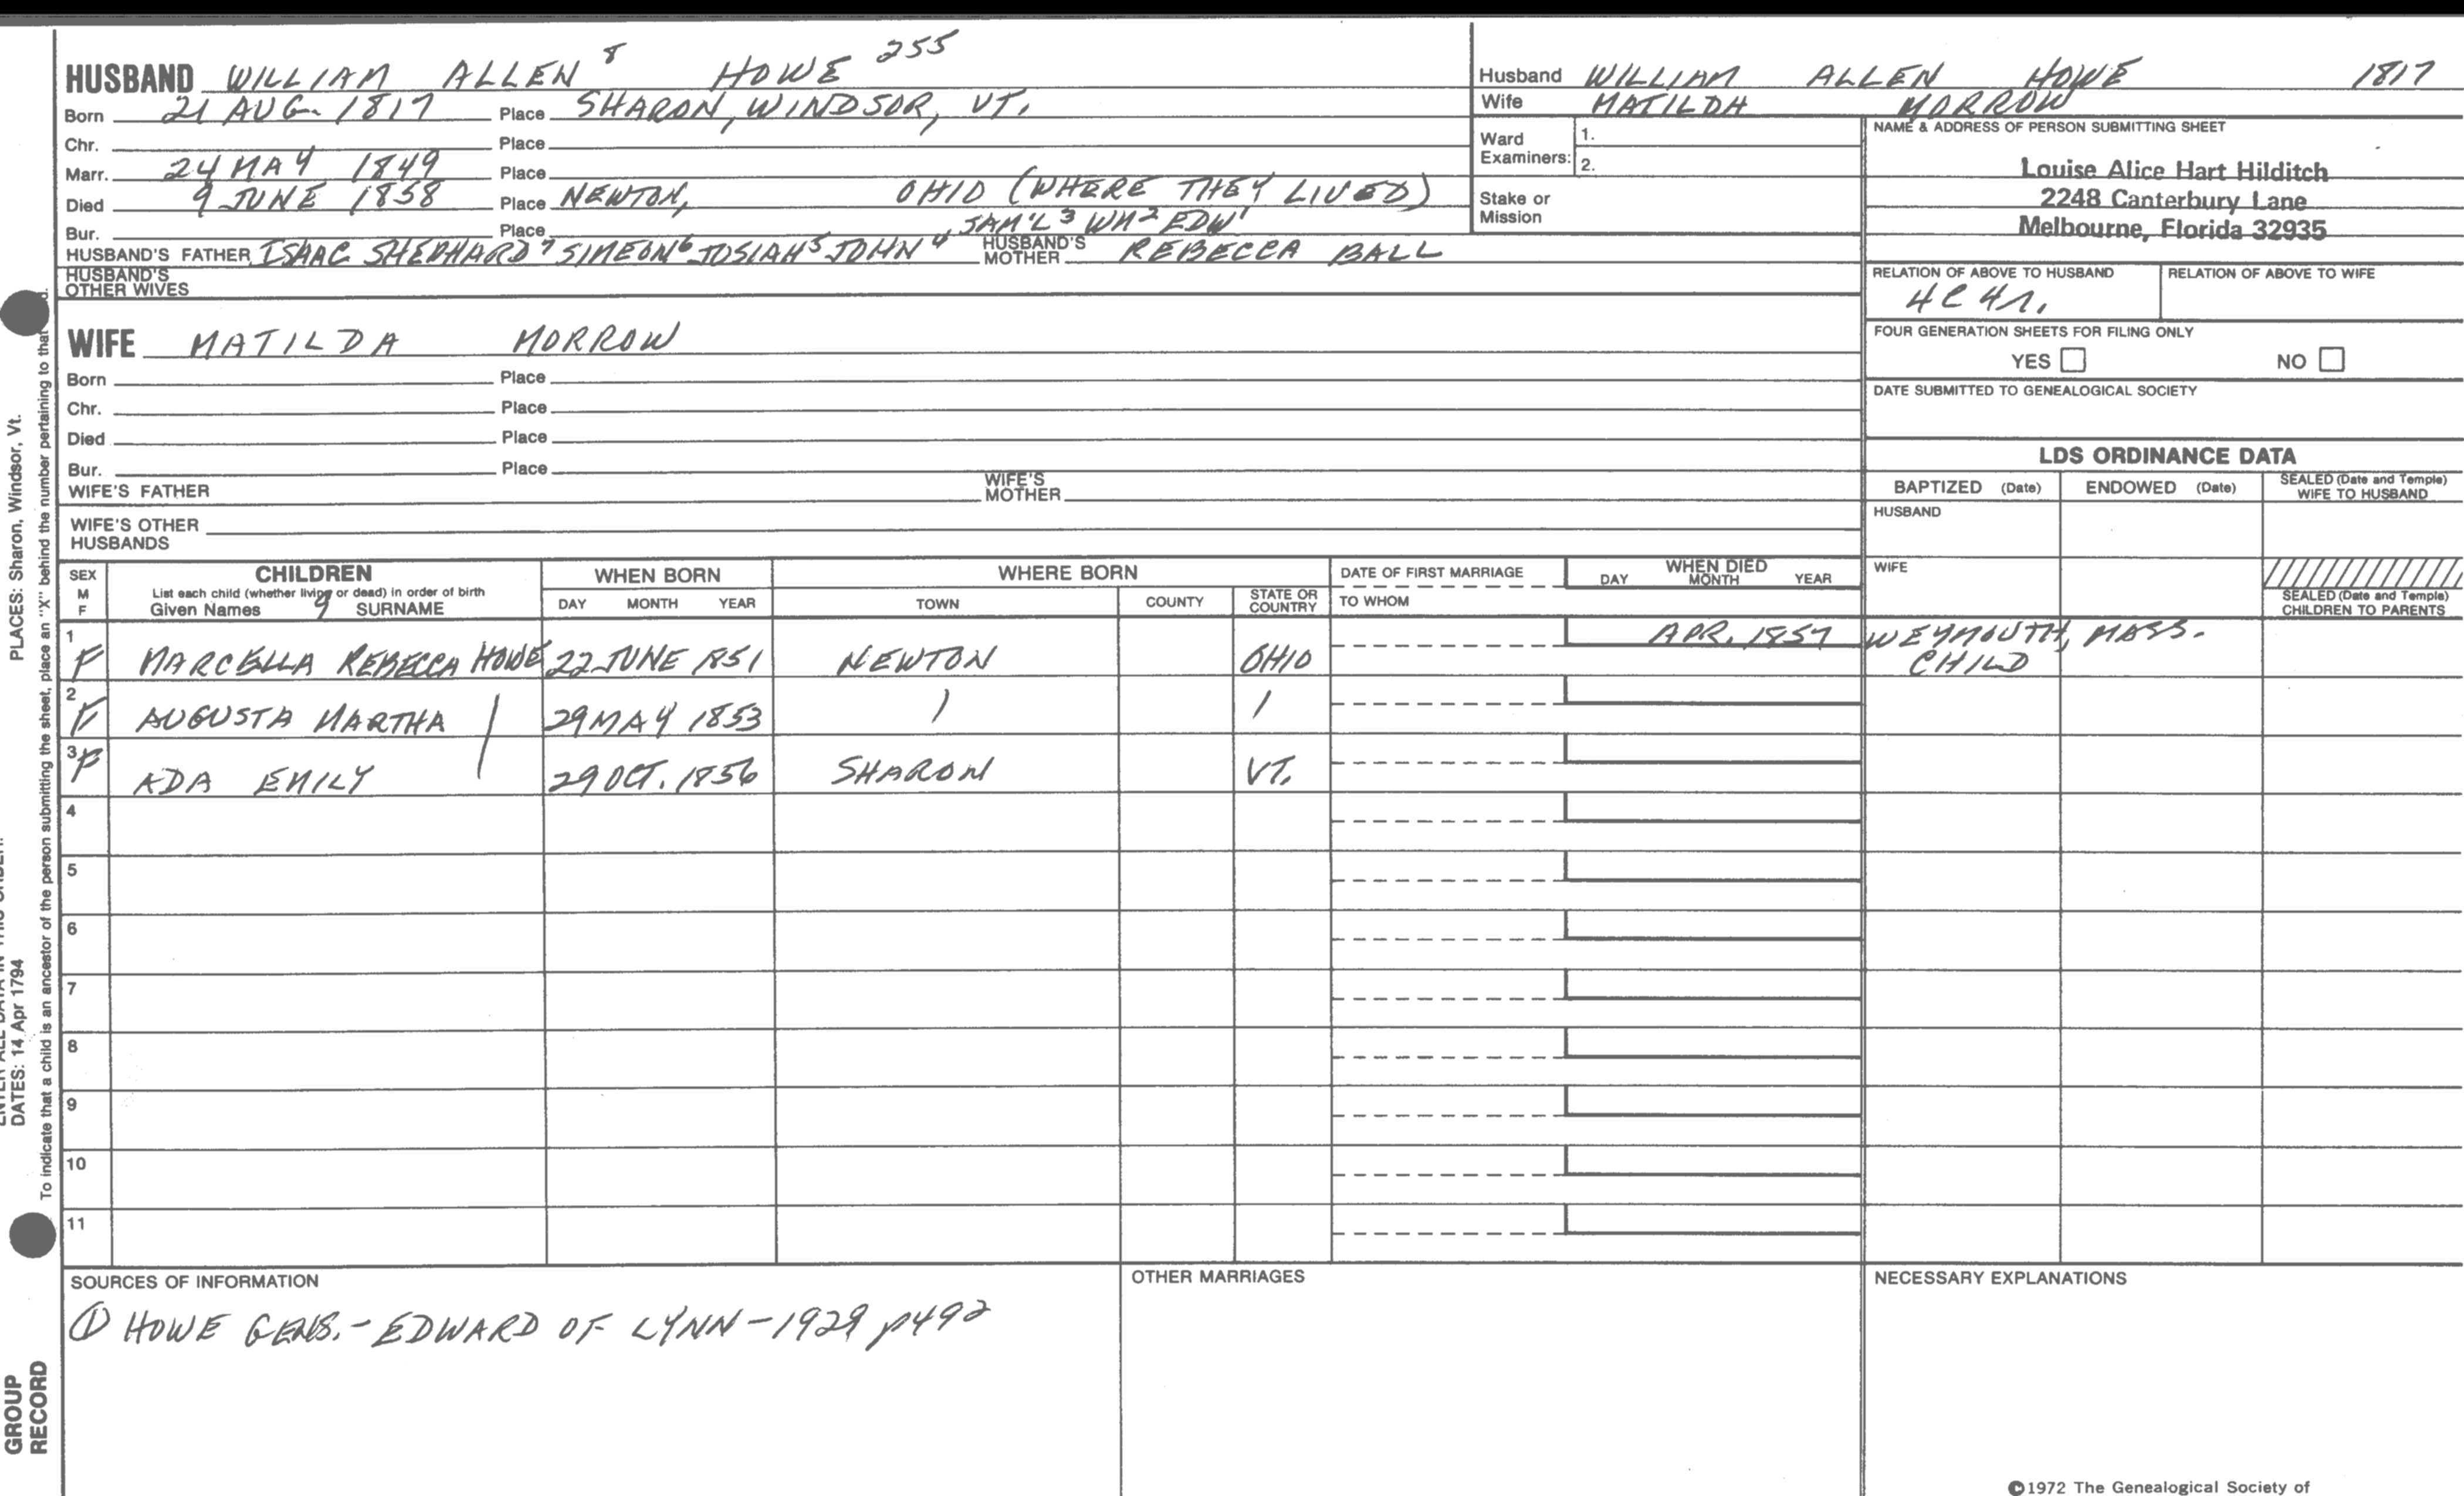 HUSBAND WILLIAM ALLEN 8 HOWE 255
Born 21 AUG. 1817 Place SHARON, WINDSOR, VT.
Chr. Place
Marr. 24 MAY 1849 Place
Died 9 JUNE 1858 Place NEWTON, OHIO (WHERE THEY LIVED)
Bur. Place SAM'L 3 WM 2 EDW 1
HUSBAND'S FATHER ISAAC SHEPHARD 7 SIMEON 6 JOSIAH 5 JOHN 4 HUSBAND'S MOTHER REBECCA BALL
HUSBAND'S OTHER WIVES
WIFE MATILDA MORROW
Born Place
Chr. Place
Died Place
Bur. Place
WIFE'S FATHER WIFE'S MOTHER
WIFE'S OTHER HUSBANDS
Husband WILLIAM ALLEN HOWE 1817
Wife MATILDA MORROW
Ward Examiners: 1.
2.
Stake or Mission
NAME & ADDRESS OF PERSON SUBMITTING SHEET
Louise Alice Hart Hilditch
2248 Canterbury Lane
Melbourne, Florida 32935
RELATION OF ABOVE TO HUSBAND RELATION OF ABOVE TO WIFE
4C 4r.
FOUR GENERATION SHEETS FOR FILING ONLY
YES NO
DATE SUBMITTED TO GENEALOGICAL SOCIETY
LDS ORDINANCE DATA
BAPTIZED (Date) ENDOWED (Date) SEALED (Date and Temple) WIFE TO HUSBAND
HUSBAND
WIFE
SEALED (Date and Temple) CHILDREN TO PARENTS
SEX M F CHILDREN WHEN BORN WHERE BORN DATE OF FIRST MARRIAGE WHEN DIED
List each child (whether living or dead) in order of birth
Given Names 9 SURNAME DAY MONTH YEAR TOWN COUNTY STATE OR COUNTRY TO WHOM DAY MONTH YEAR
1 F MARCELLA REBECCA HOWE 22 JUNE 1851 NEWTON OHIO APR. 1857 WEYMOUTH, MASS.
CHILD
2 F AUGUSTA MARTHA 29 MAY 1853
3 F ADA EMILY 29 OCT. 1856 SHARON VT.
4
5
6
7
8
9
10
11
SOURCES OF INFORMATION OTHER MARRIAGES NECESSARY EXPLANATIONS
① HOWE GENS. - EDWARD OF LYNN - 1929 p492
©1972 The Genealogical Society of
PLACES: Sharon, Windsor, Vt.
DATES: 14 Apr 1794
To indicate that a child is an ancestor of the person submitting the sheet, place an "X" behind the number pertaining to that
GROUP
RECORD